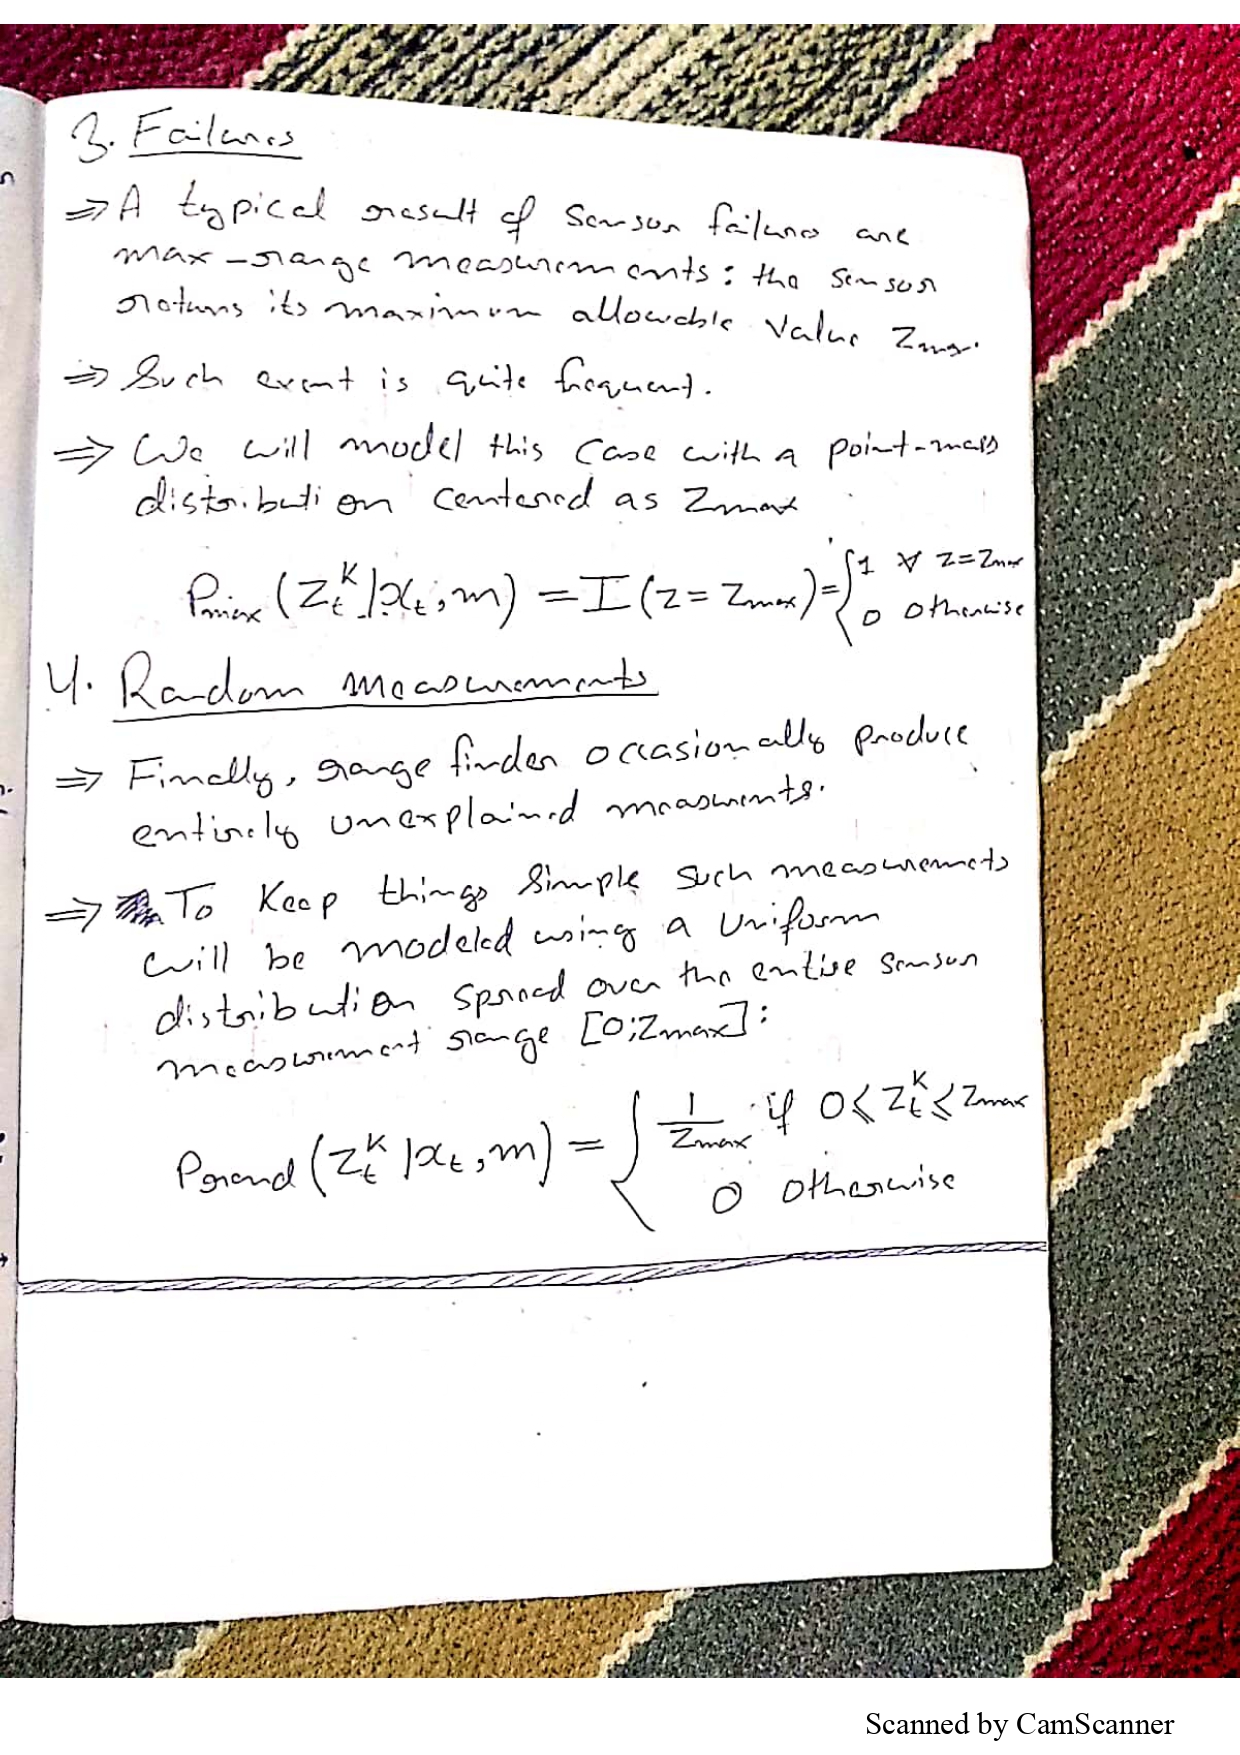 3. Failures
⇒ A typical result of sensor failures are
max-range measurements: the sensor
returns its maximum allowable value Zmax.
⇒ Such event is quite frequent.
⇒ We will model this case with a point-mass
distribution centered as Zmax
Pmax (Z_t^K | x_t, m) = I (z = Zmax) = { 1 ∀ z = Zmax
0 otherwise
4. Random measurements
⇒ Finally, range finder occasionally produce
entirely unexplained measurments.
⇒ To Keep things simple such measuremets
will be modeled using a Uniform
distribution spread over the entire sensor
measurement range [0;Zmax]:
Prand (Z_t^K | x_t, m) = { 1/Zmax if 0 ≤ Z_t^K ≤ Zmax
0 otherwise
Scanned by CamScanner